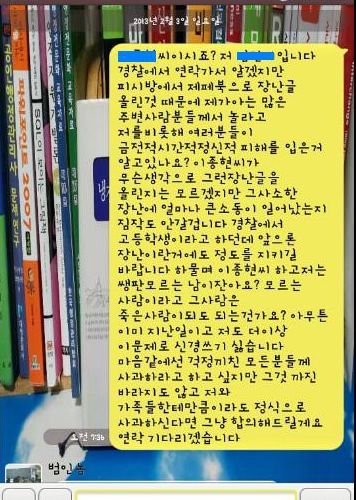 2013년 2월 3일 일요일
씨이시죠? 저 입니다
경찰에서 연락가서 알겠지만
피시방에서 제페북으로 장난글
올린것 때문에 제가아는 많은
주변사람분들께서 놀라고
저를비롯해 여러분들이
금전적시간적정신적 피해를 입은거
알고있나요? 이종현씨가
무슨생각으로 그런장난글을
올린지는 모르겠지만 그사소한
장난에 얼마나 큰소동이 일어났는지
짐작도 안갈겁니다 경찰에서
고등학생이라고 하던데 앞으론
장난이란거에도 정도를 지키길
바랍니다 하물며 이종현씨 하고저는
쌩판모르는 남이잔아요? 모르는
사람이라고 그사람은
죽은사람이되도 되는건가요? 아무튼
이미 지난일이고 저도 더이상
이문제로 신경쓰기 싫습니다
마음같에선 걱정끼친 모든분들께
사과하라고 하고 싶지만 그것 까진
바라지도 않고 저와
가족들한테만큼이라도 정식으로
사과하신다면 그냥 합의해드릴게요
연락 기다리겠습니다
오전 7:36
범인놈
파워포인트 2007
SQL